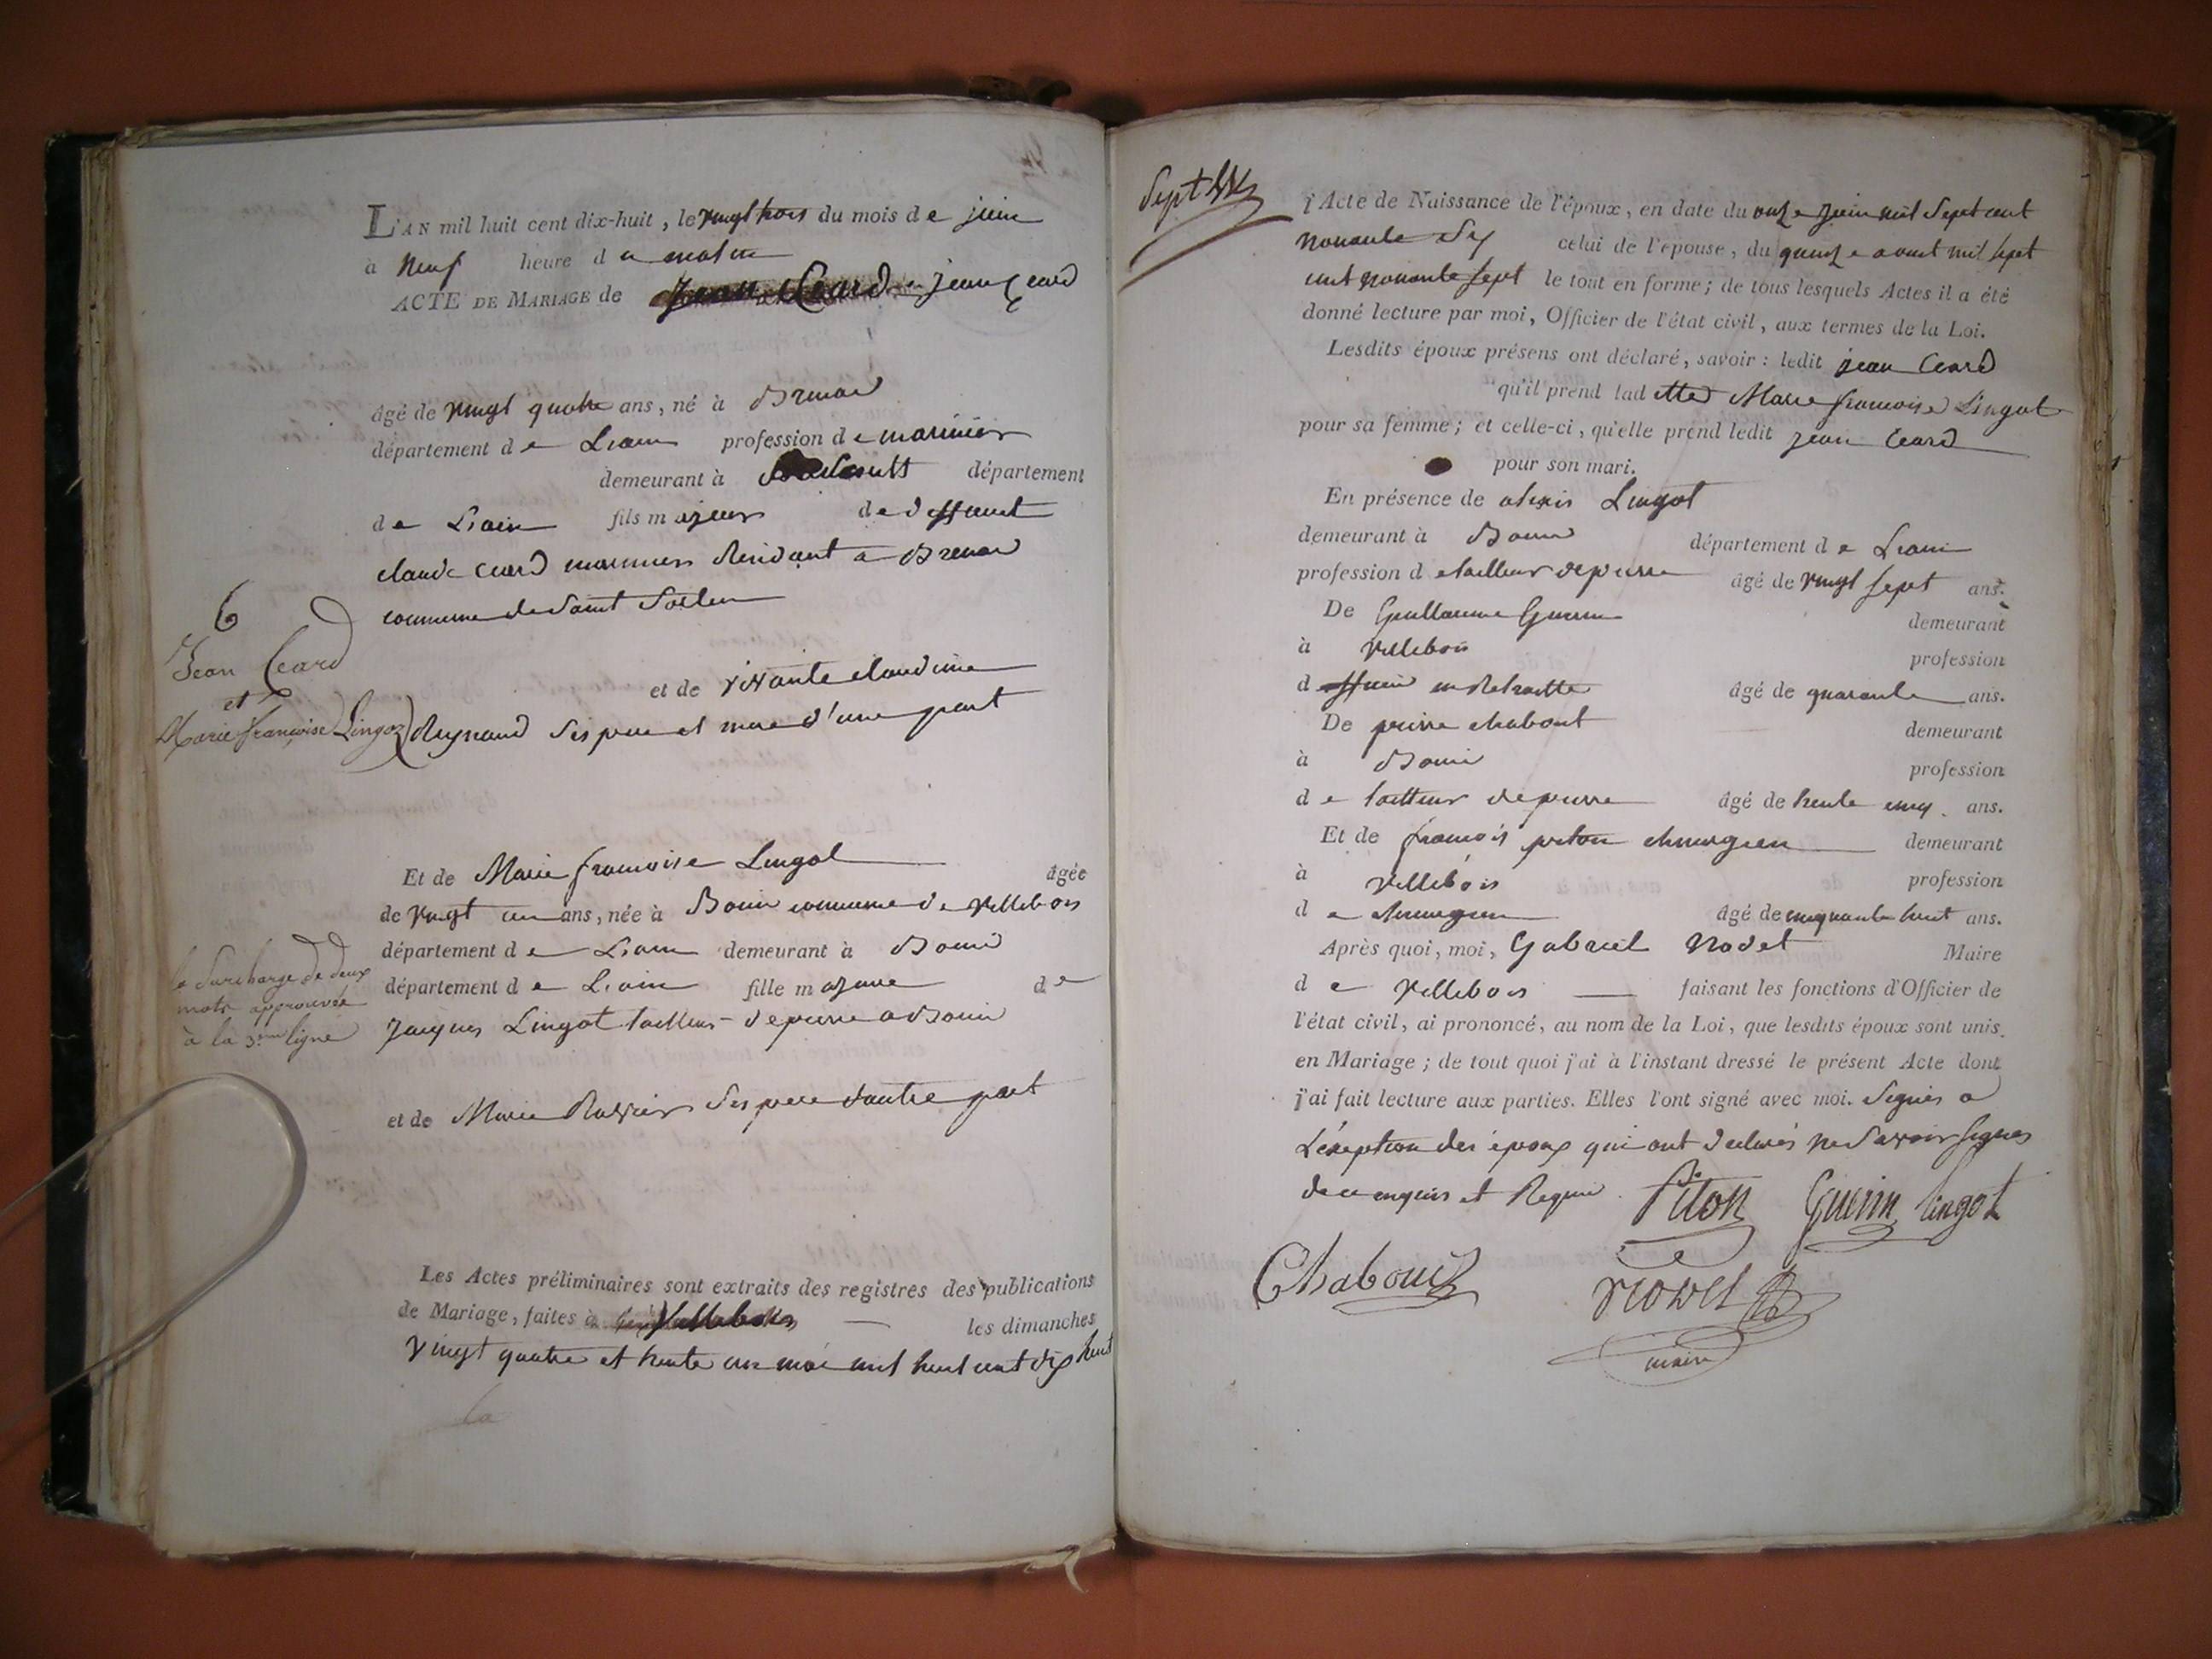 L'AN mil huit cent dix-huit, le vingt trois du mois de juin
à neuf heure du matin
ACTE DE MARIAGE de Jean Ceard jean Ceard
âgé de vingt quatre ans, né à Brenas
département de Lain profession de marinier
demeurant à Sault département
de Lain fils majeur de deffunt
claude ceard marinier Residant a Brenas
commune de Saint
6
Jean Ceard
et
Marie françoise Lingoz
et de vivante claudine
Reynaud Ses pere et mere d'une part
Et de Marie francoise Lingot âgée
de vingt un ans, née à Bouis commune de villebois
département de Lain demeurant à Bouis
département de Lain fille majeure de
jacques Lingot tailleur de pierre a Bouis
la Surcharge de deux
mots approuvée
à la 3eme ligne
et de Marie Ses pere d'autre part
Les Actes préliminaires sont extraits des registres des publications
de Mariage, faites à Villebois les dimanches
vingt quatre et trente un mai mil huit cent dix huit
la
Sept
l'Acte de Naissance de l'époux, en date du onze juin mil Sept cent
nonante celui de l'épouse, du quinze aout mil sept
cent nonante sept le tout en forme; de tous lesquels Actes il a été
donné lecture par moi, Officier de l'état civil, aux termes de la Loi.
Lesdits époux présens ont déclaré, savoir : ledit jean Ceard
qu'il prend laditte Marie francoise Lingot
pour sa femme; et celle-ci, qu'elle prend ledit jean Ceard
pour son mari.
En présence de alexis Lingot
demeurant à Bouis département de Lain
profession de tailleur de pierre âgé de vingt sept ans.
De Guillaume Guerin demeurant
à villebois profession
d en Retraitte âgé de quarante ans.
De pierre chabout demeurant
à Bouis profession
de tailleur de pierre âgé de trente cinq ans.
Et de francois piton chirurgien demeurant
à villebois profession
de chirurgien âgé de cinquante huit ans.
Après quoi, moi, Gabriel Nodet Maire
de villebois faisant les fonctions d'Officier de
l'état civil, ai prononcé, au nom de la Loi, que lesdits époux sont unis
en Mariage; de tout quoi j'ai à l'instant dressé le présent Acte dont
j'ai fait lecture aux parties. Elles l'ont signé avec moi. Signés a
L'exeption des époux qui ont declarés ne Savoir signer
de ce enquis et Requis Piton Guerin Lingot
Chabout
Nodet
maire